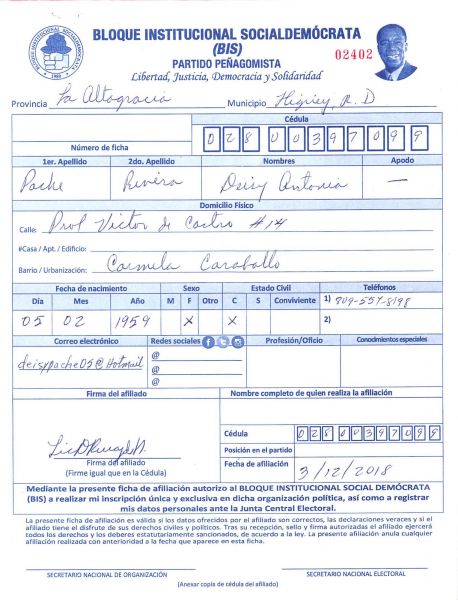 BLOQUE INSTITUCIONAL SOCIALDEMÓCRATA
(BIS)
02402
PARTIDO PEÑAGOMISTA
Libertad, Justicia, Democracia y Solidaridad
Provincia La Altagracia Municipio Higüey, R.D
Cédula
Número de ficha 028 0039709 9
1er. Apellido 2do. Apellido Nombres Apodo
Pache Rivera Deisy Antonia —
Domicilio Físico
Calle: Prol Victor de Castro #14
#Casa / Apt. / Edificio:
Barrio / Urbanización: Carmela Caraballo
Fecha de nacimiento Sexo Estado Civil Teléfonos
Día Mes Año M F Otro C S Conviviente 1) 809-554-8198
05 02 1959 X X 2)
Correo electrónico Redes sociales Profesión/Oficio Conocimientos especiales
deisypache05@Hotmail @
@
@
Firma del afiliado Nombre completo de quien realiza la afiliación
Cédula 028 0039709 9
Posición en el partido
Firma del afiliado
(Firme igual que en la Cédula)
Fecha de afiliación 3/12/2018
Mediante la presente ficha de afiliación autorizo al BLOQUE INSTITUCIONAL SOCIAL DEMÓCRATA
(BIS) a realizar mi inscripción única y exclusiva en dicha organización política, así como a registrar
mis datos personales ante la Junta Central Electoral.
La presente ficha de afiliación es válida si los datos ofrecidos por el afiliado son correctos, las declaraciones veraces y si el afiliado
tiene el disfrute de sus derechos civiles y políticos. Tras su recepción, sello y firma autorizadas el afiliado ejercerá
todos los derechos y los deberes estatutariamente sancionados, de acuerdo a la ley. La presente afiliación anula cualquier
afiliación realizada con anterioridad a la fecha que aparece en esta ficha.
SECRETARIO NACIONAL DE ORGANIZACIÓN SECRETARIO NACIONAL ELECTORAL
(Anexar copia de cédula del afiliado)